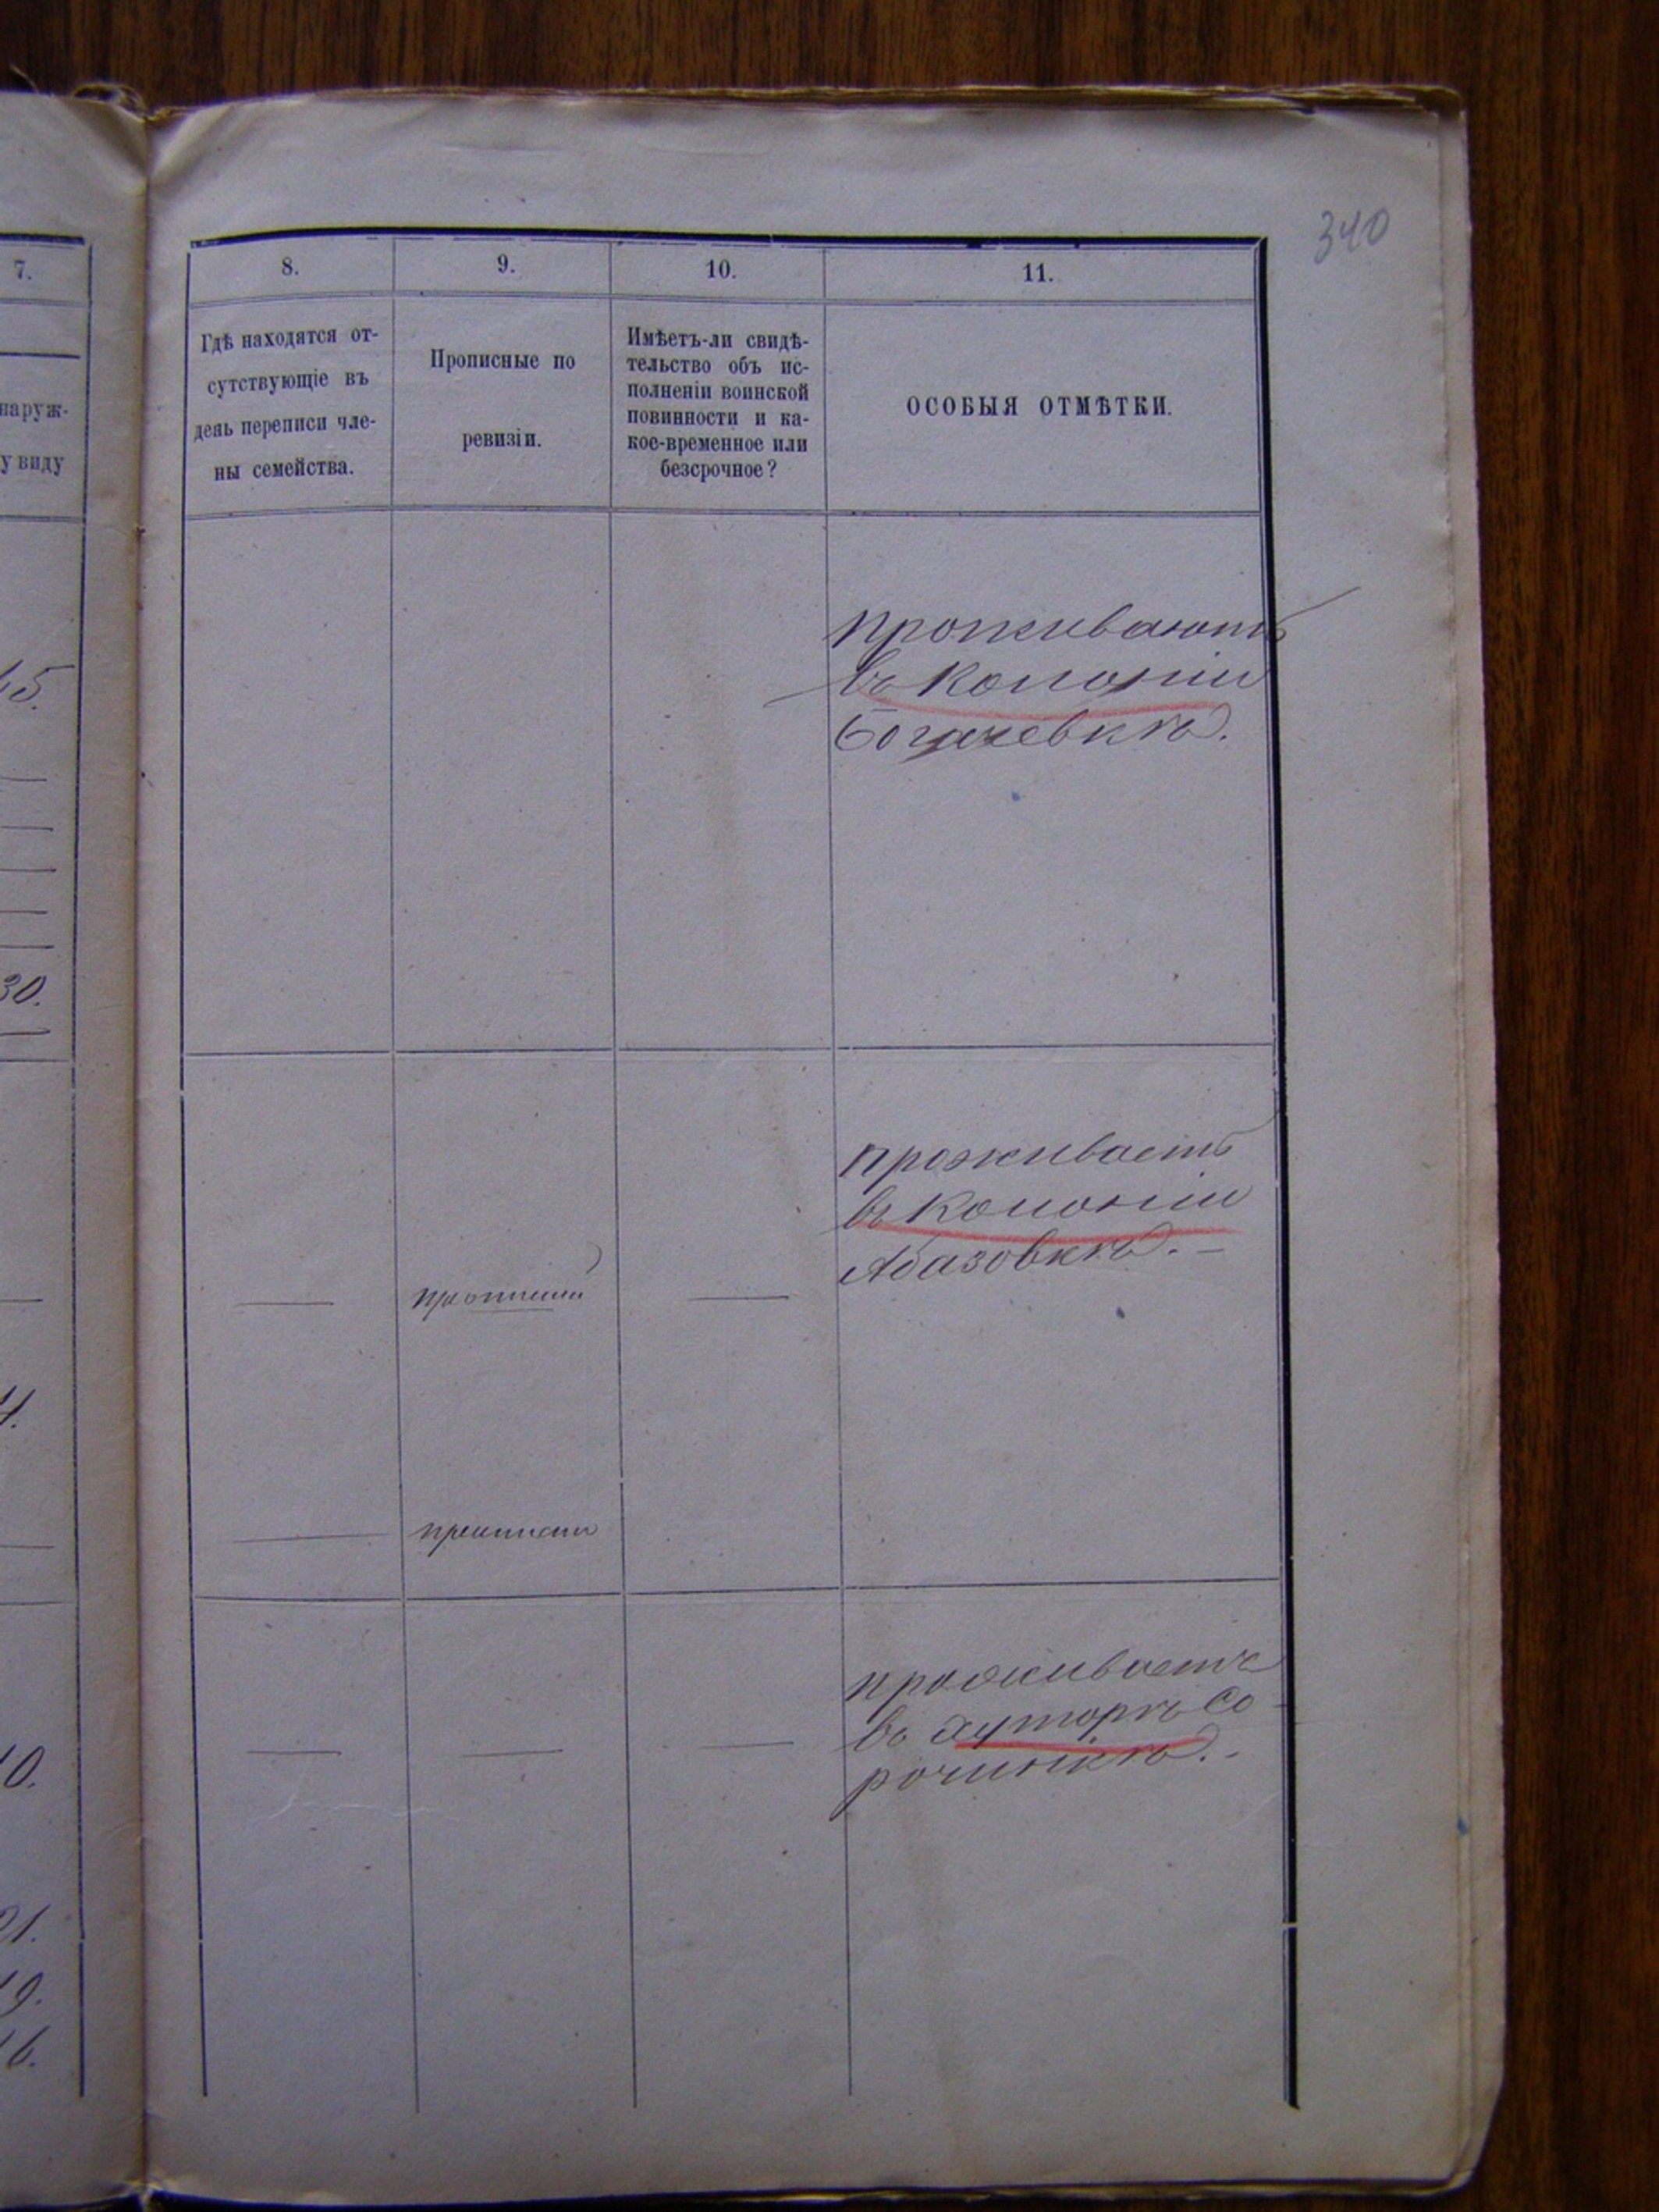 340
7.
8.
9.
10.
11.
наруж-
у виду
Гдѣ находятся от-
сутствующіе въ
день переписи чле-
ны семейства.
Прописные по
ревизіи.
Имѣетъ-ли свидѣ-
тельство объ ис-
полненіи воинской
повинности и ка-
кое-временное или
безсрочное?
ОСОБЫЯ ОТМѢТКИ.
проживаютъ
въ колоніи
Богачевкѣ.
5.
30.
проживаетъ
въ колоніи
Абазовкѣ. –
4.
проживаетъ
въ хуторѣ Со-
рочинкѣ. –
0.
21.
19.
16.